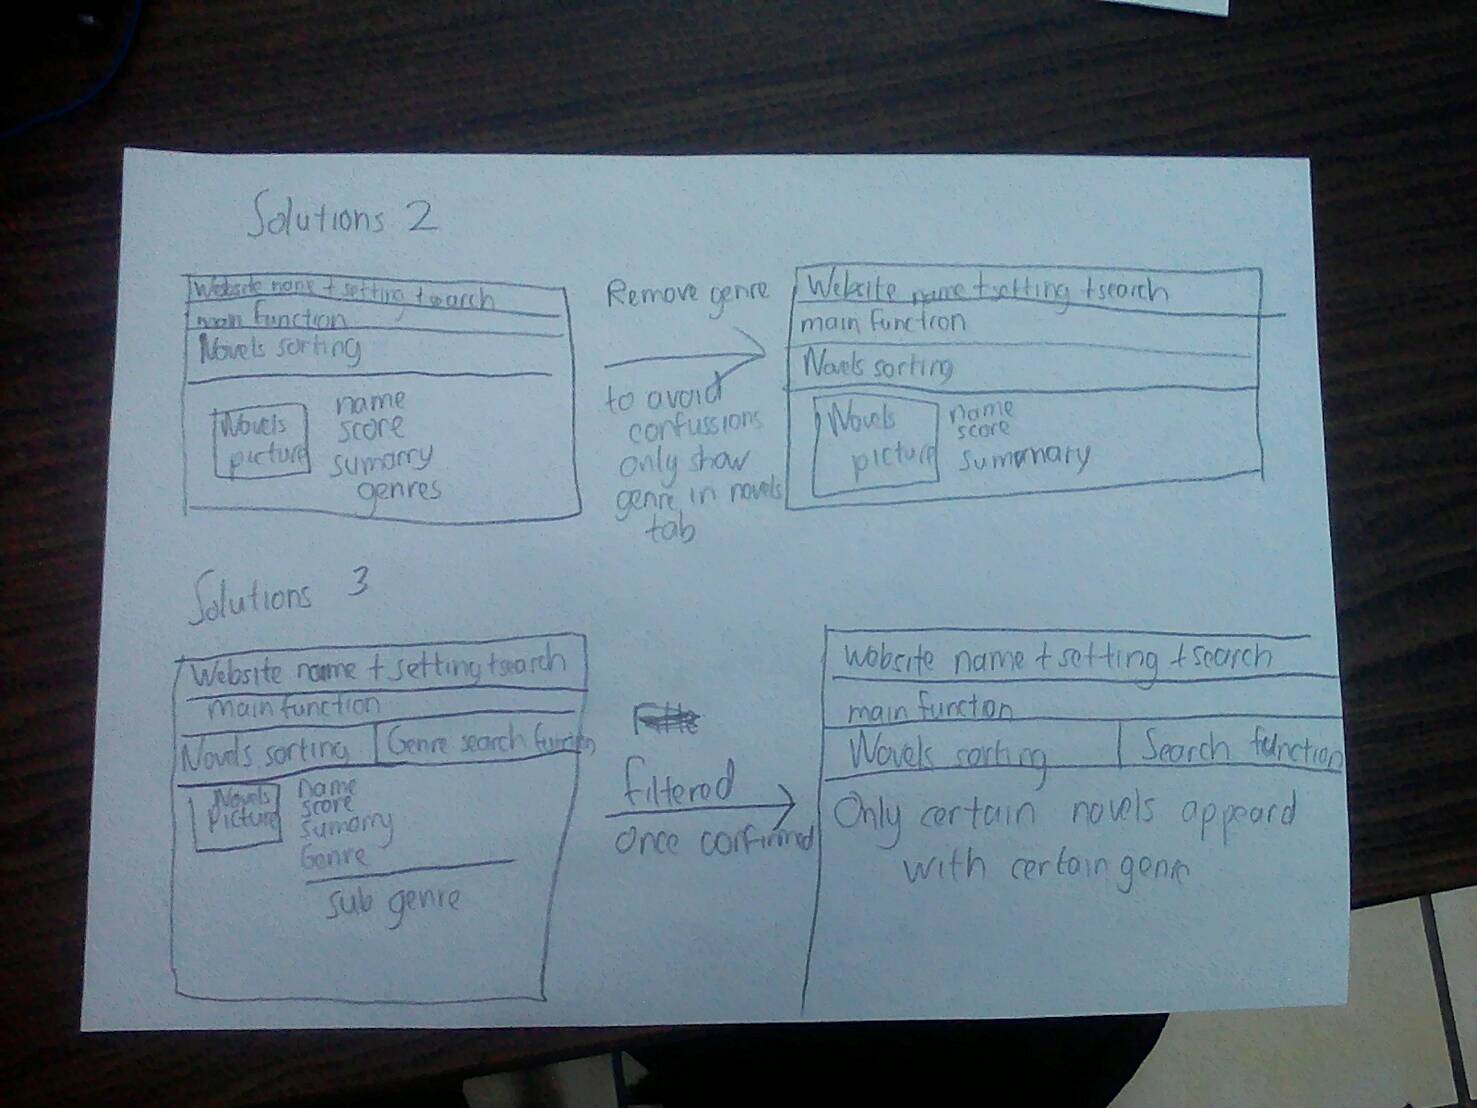 Solutions 2
Website name + setting + search
main function
Novels sorting
Novels
picture
name
score
sumarry
genres
Remove genre
to avoid
confussions
only show
genre in novels
tab
Website name + setting + search
main function
Novels sorting
Novels
picture
name
score
sumamary
Solutions 3
Website name + setting + search
main function
Novels sorting | Genre search function
Novels
Picture
name
score
sumarry
Genre
sub genre
filtered
once confirmed
Website name + setting + search
main function
Novels sorting | Search function
Only certain novels appeard
with certain genre